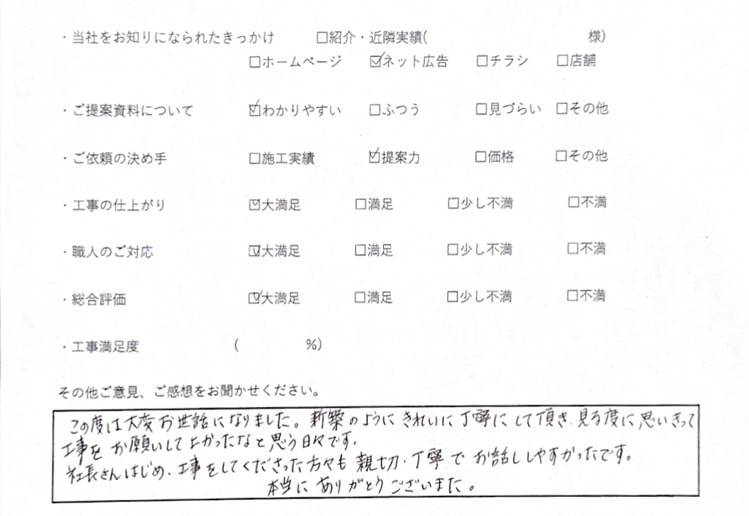 ・当社をお知りになられたきっかけ □紹介・近隣実績( 様)
□ホームページ ☑ネット広告 □チラシ □店舗
・ご提案資料について ☑わかりやすい □ふつう □見づらい □その他
・ご依頼の決め手 □施工実績 ☑提案力 □価格 □その他
・工事の仕上がり ☑大満足 □満足 □少し不満 □不満
・職人のご対応 ☑大満足 □満足 □少し不満 □不満
・総合評価 ☑大満足 □満足 □少し不満 □不満
・工事満足度 ( %)
その他ご意見、ご感想をお聞かせください。
この度は大変お世話になりました。新築のようにきれいに丁寧にして頂き、見る度に思いきって
工事をお願いして良かったなと思う日々です。
社長さんはじめ、工事をしてくださった方々も親切・丁寧でお話ししやすかったです。
本当にありがとうございました。